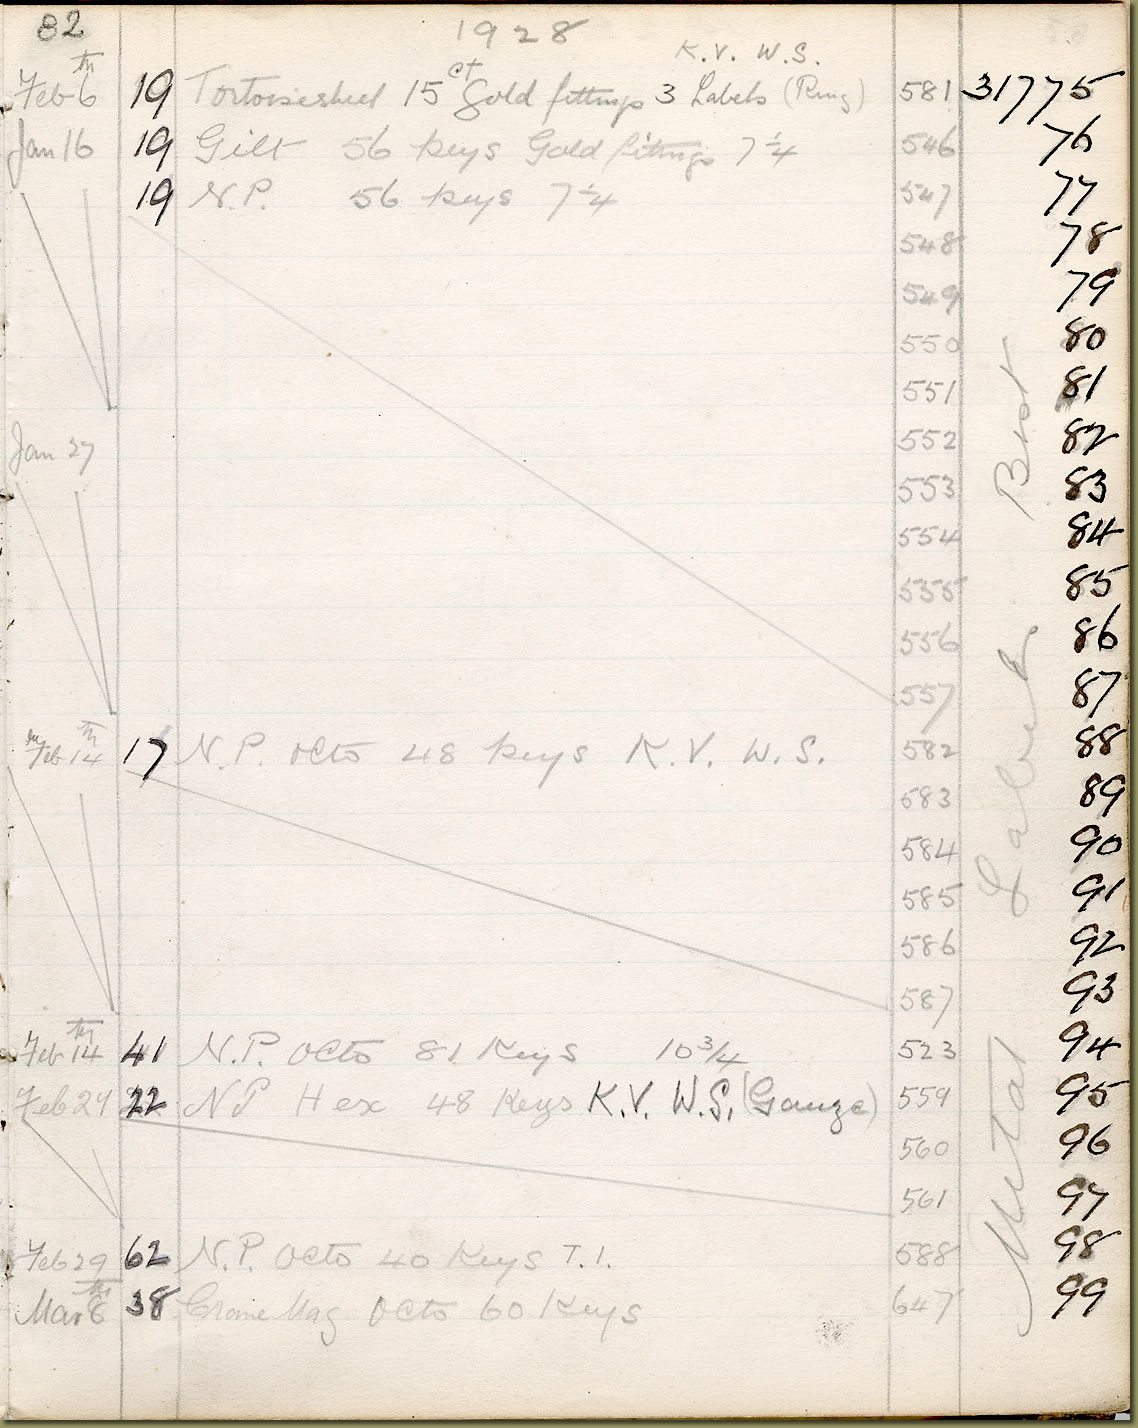 82
1928
K.V. W.S.
Feb 6th 19 Tortoiseshell 15ct Gold fittings 3 Labels (Ring) 581 31775
Jan 16 19 Gilt 56 keys Gold fittings 7 1/4 546 76
19 N.P. 56 keys 7 1/4 547 77
548 78
549 79
550 80
551 81
Jan 27 552 82
553 83
554 84
555 85
556 86
557 87
Feb 14th 17 N.P. Octo 48 keys K.V. W.S. 582 88
583 89
584 90
585 91
586 92
587 93
Feb 14th 41 N.P. Octo 81 Keys 10 3/4 523 94
Feb 27 22 N P Hex 48 Keys K.V. W.S. (Gauze) 559 95
560 96
561 97
Feb 29 62 N.P. Octo 40 Keys T.I. 588 98
Mar 8th 38 Crome Mag Octo 60 Keys 647 99
Metal Labels Bot